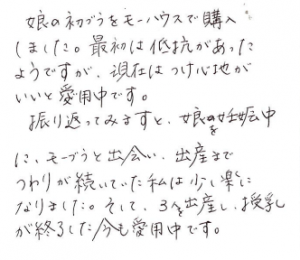 娘の初ブラをモーハウスで購入
しました。最初は抵抗があった
ようですが、現在はつけ心地が
いいと愛用中です。
振り返ってみますと、娘の妊娠中
に、モーブラと出会い、出産まで
つわりが続いていた私は少し楽に
なりました。そして、3を出産し、授乳
が終了した今も愛用中です。